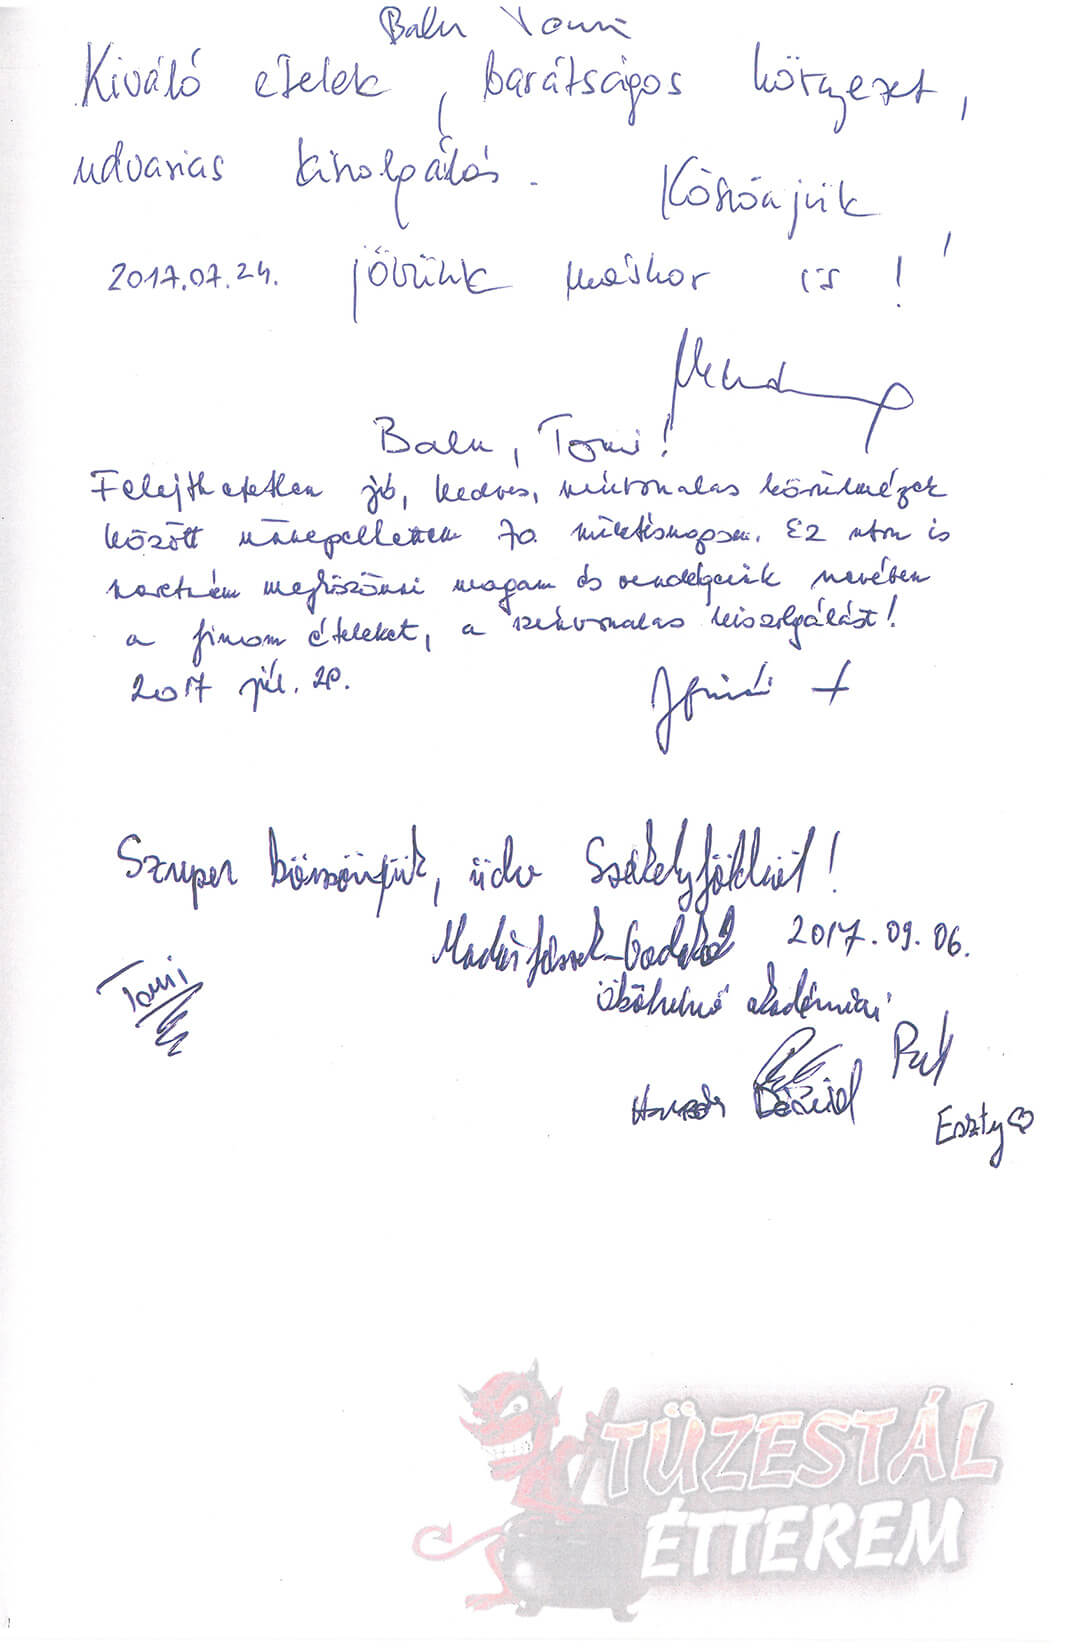 Balu Tomi
Kiváló ételek, barátságos környezet,
udvarias kiszolgálás. Köszönjük,
2017.07.24. jövünk máskor is!
Balu, Tomi!
Felejthetetlen jó, kedves, színvonalas körülmények
között ünnepeltem 70. születésnapom. Ez uton is
szeretném megköszönni magam és vendégeink nevében
a finom ételeket, a színvonalas kiszolgálást!
2017 júl. 20.
Szuper köszönjük, üdv Székelyföldről!
2017.09.06.
Tomi
ökölvívó akadémiai
Dávid
Eszty
TÜZESTÁL
ÉTTEREM